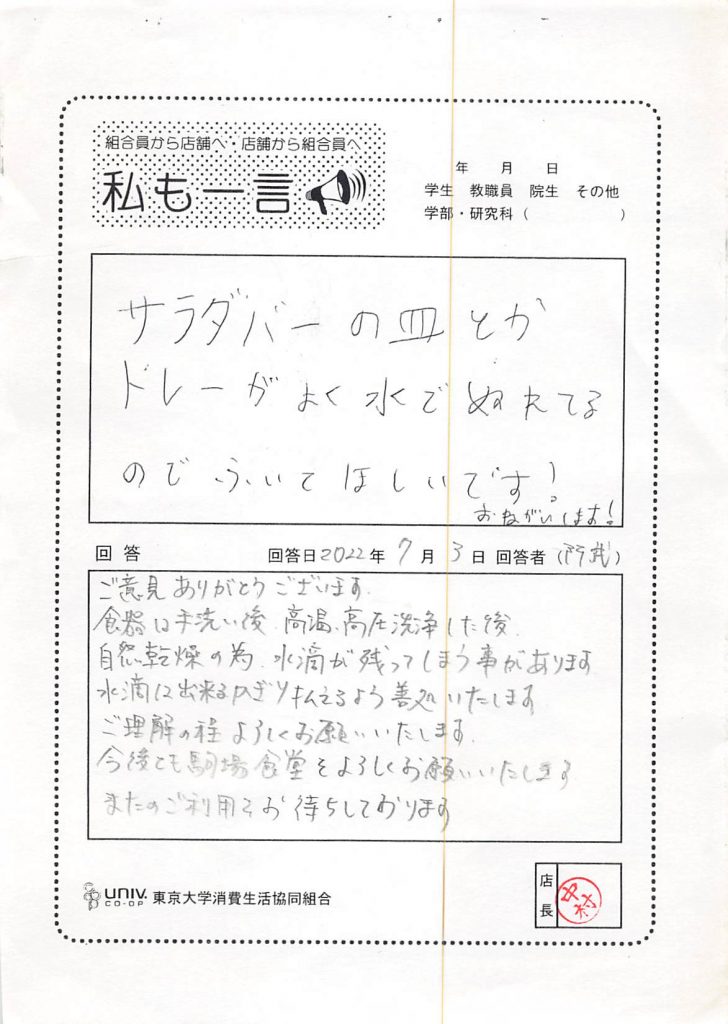 組合員から店舗へ・店舗から組合員へ
私も一言
年 月 日
学生 教職員 院生 その他
学部・研究科( )
サラダバーの皿とか
トレーがよく水でぬれてる
のでふいてほしいです!
おねがいします!
回答 回答日2022年7月3日 回答者( )
ご意見ありがとうございます.
食器は手洗い後、高温、高圧洗浄した後、
自然乾燥の為、水滴が残ってしまう事があります
水滴は出来るかぎり払えるよう善処いたします
ご理解の程よろしくお願いいたします.
今後とも駒場食堂をよろしくお願いいたします
またのご利用をお待ちしております
UNIV. CO-OP 東京大学消費生活協同組合
店長 中村